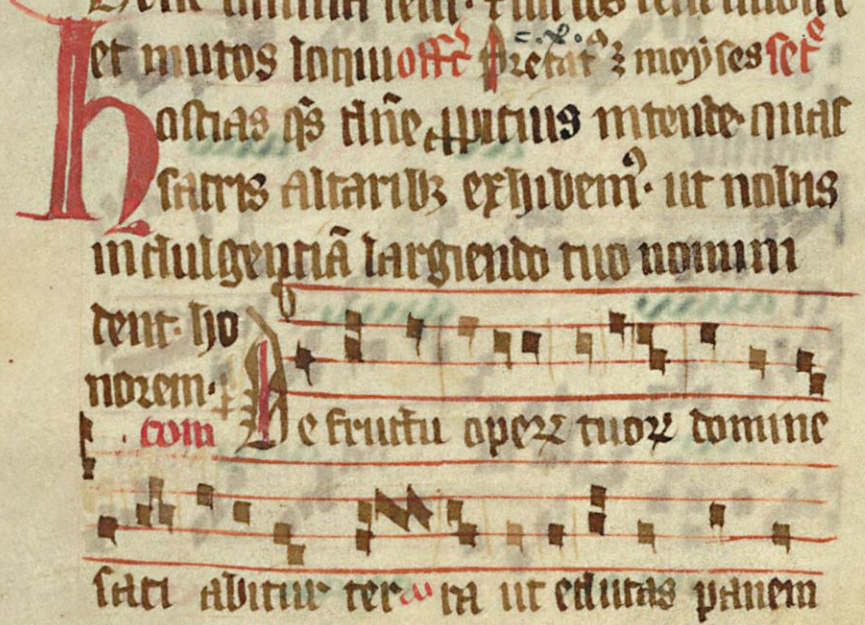 et mutos loqui offč P̄cat᷒ ē moyses sec̄
hostias q̄s dn̄e ꝓpitius intende quas
sacris altaribꝫ exhibem᷒· ut nobis
indulgentiā largiendo tuo nomini
dent· ho
norem·
com De fructu operꝝ tuorꝝ domine
saci abitur ter ra ut educas panem